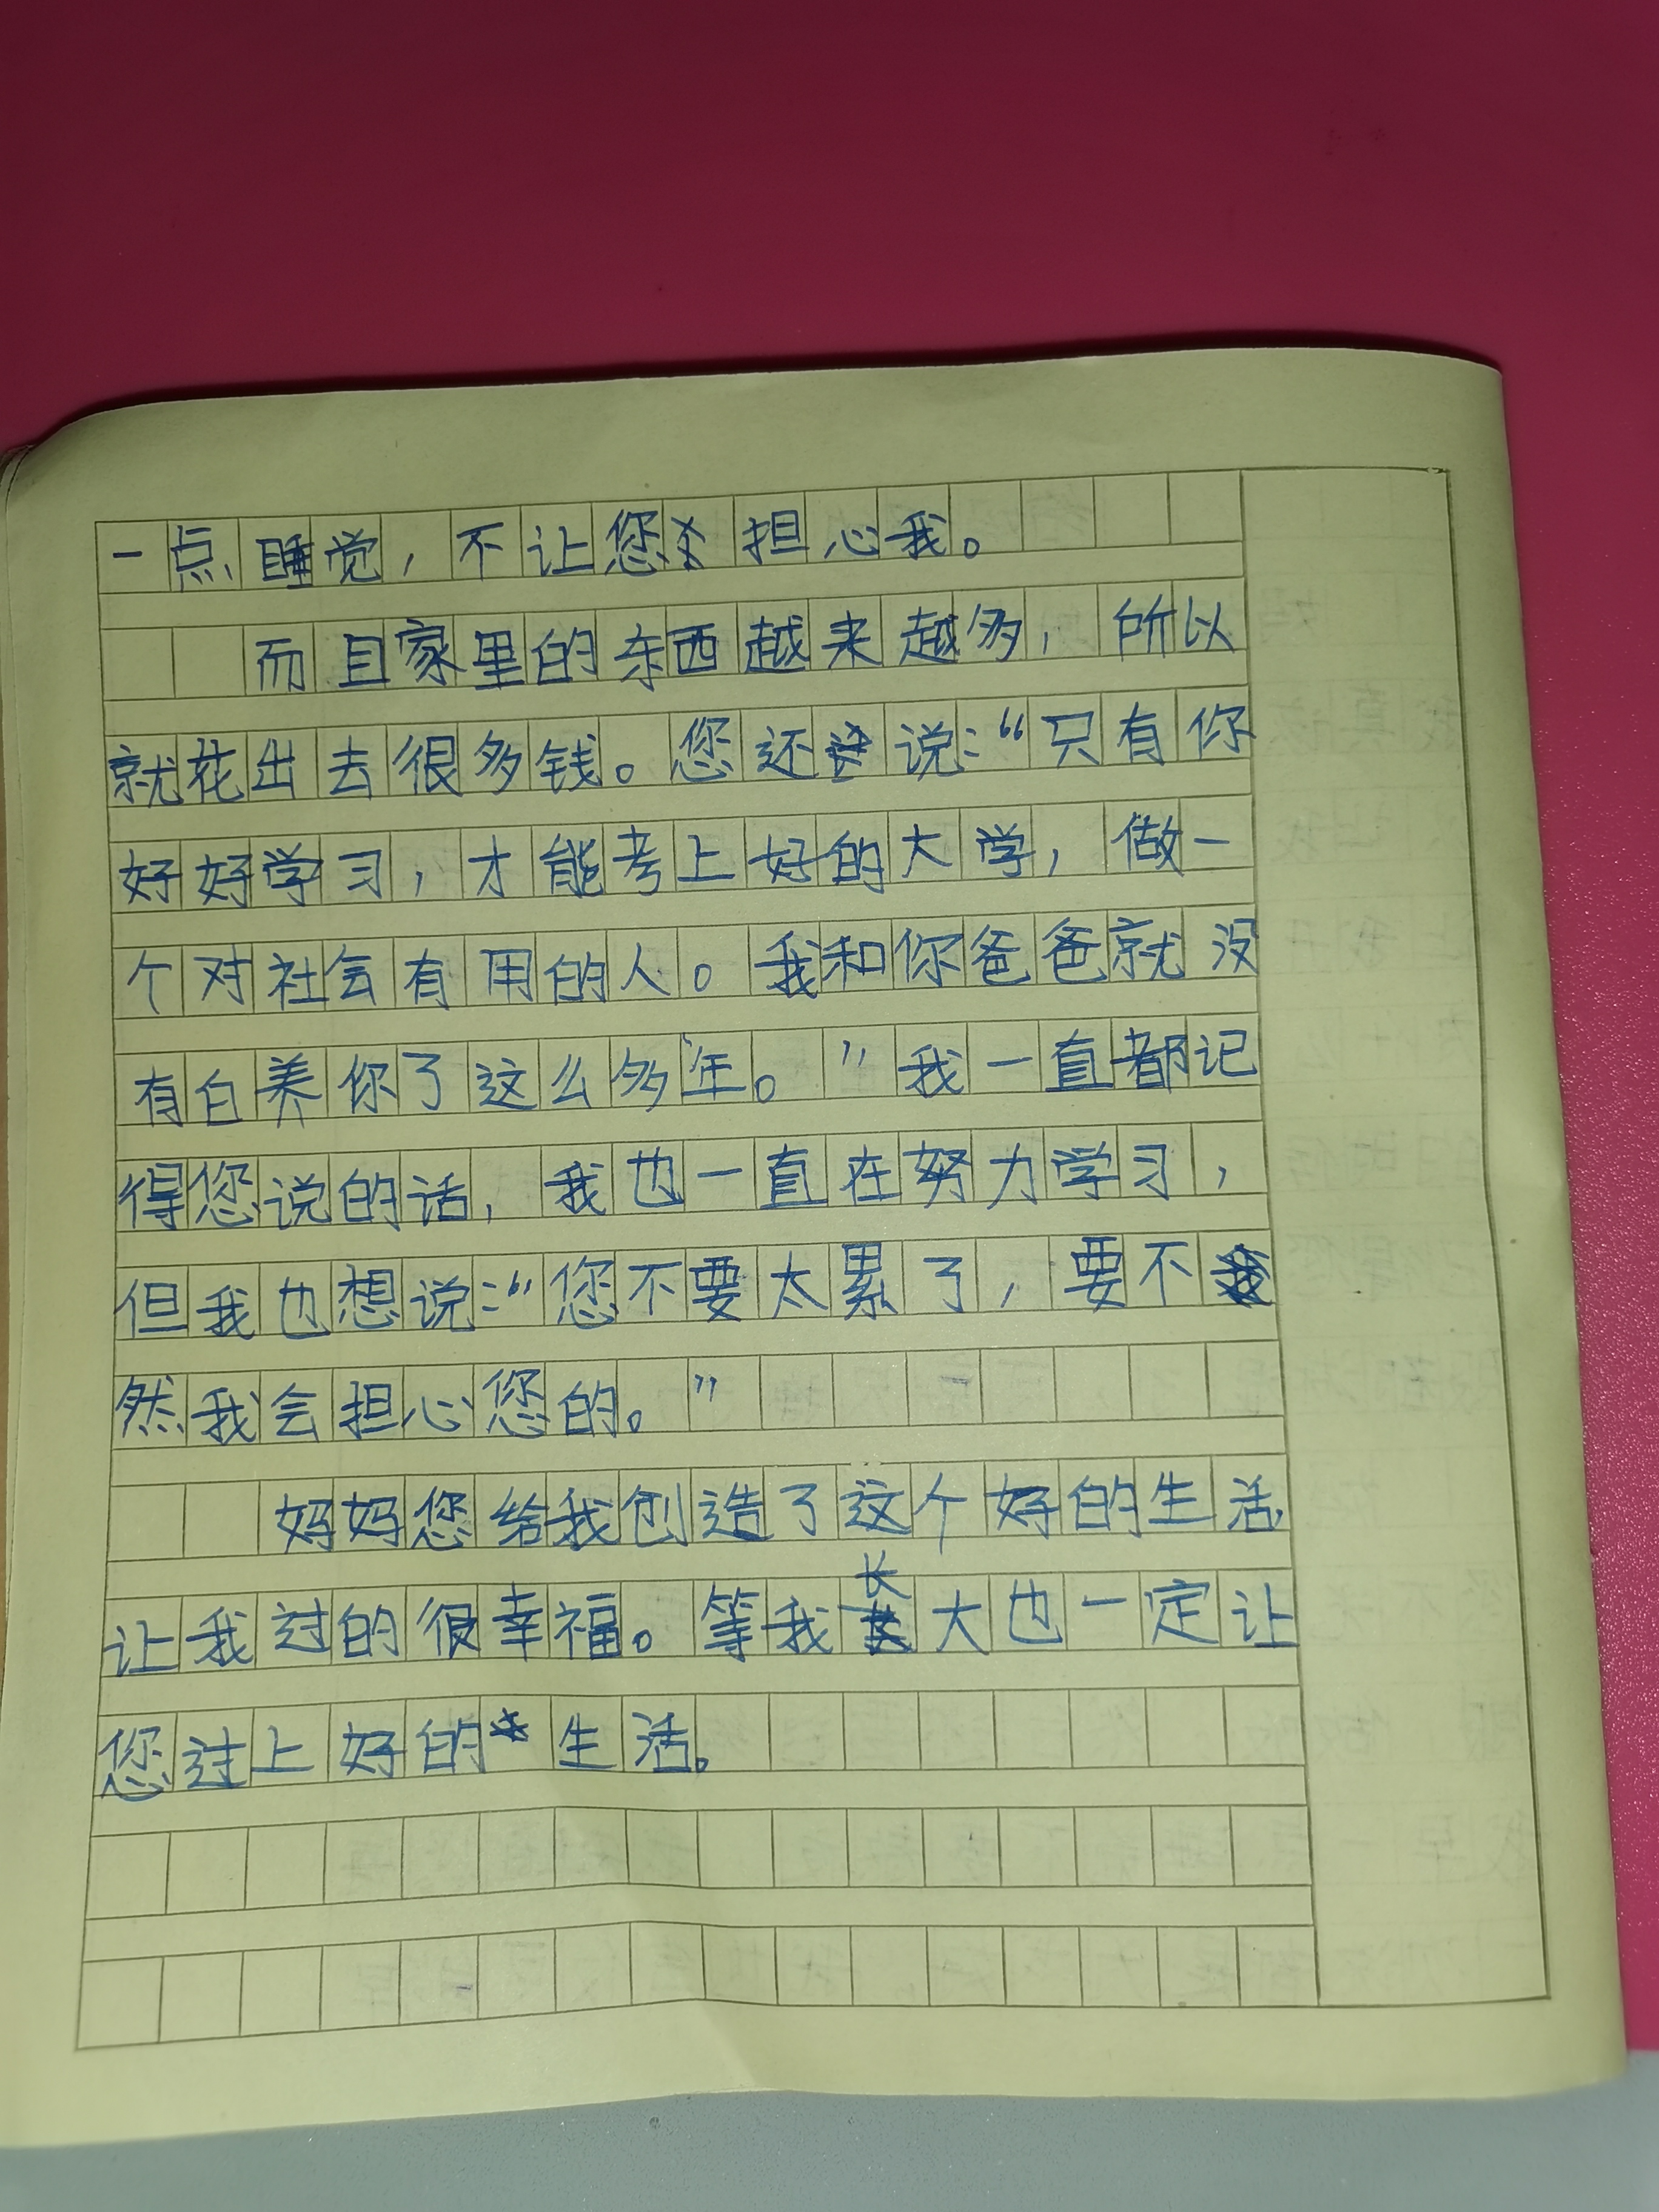 一点睡觉，不让您担心我。
而且家里的东西越来越多，所以
就花出去很多钱。您还说：“只有你
好好学习，才能考上好的大学，做一
个对社会有用的人。我和你爸爸就没
有白养你了这么多年。”我一直都记
得您说的话，我也一直在努力学习，
但我也想说：“您不要太累了，要不
然我会担心您的。”
妈妈您给我创造了这个好的生活
让我过的很幸福。等我长大也一定让
您过上好的生活。